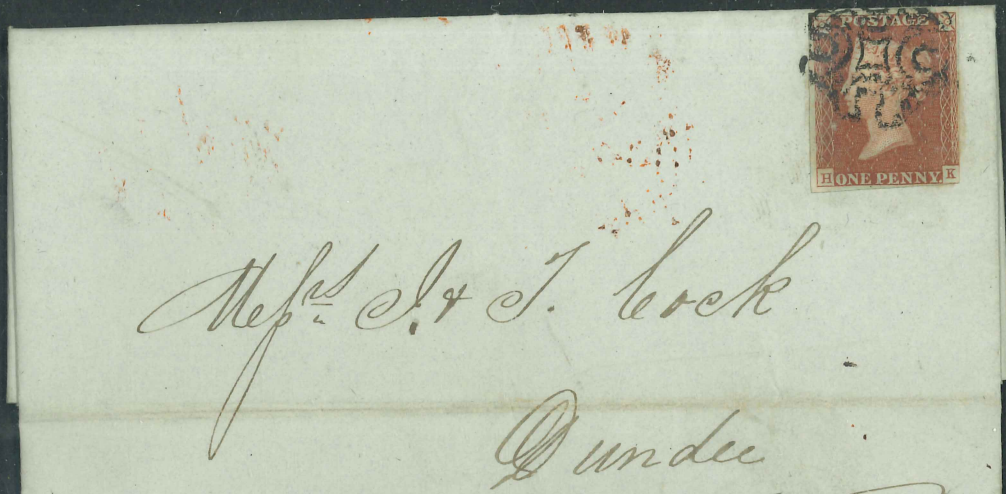 POSTAGE
H ONE PENNY. K
Messrs J. & T. Cock
Dundee